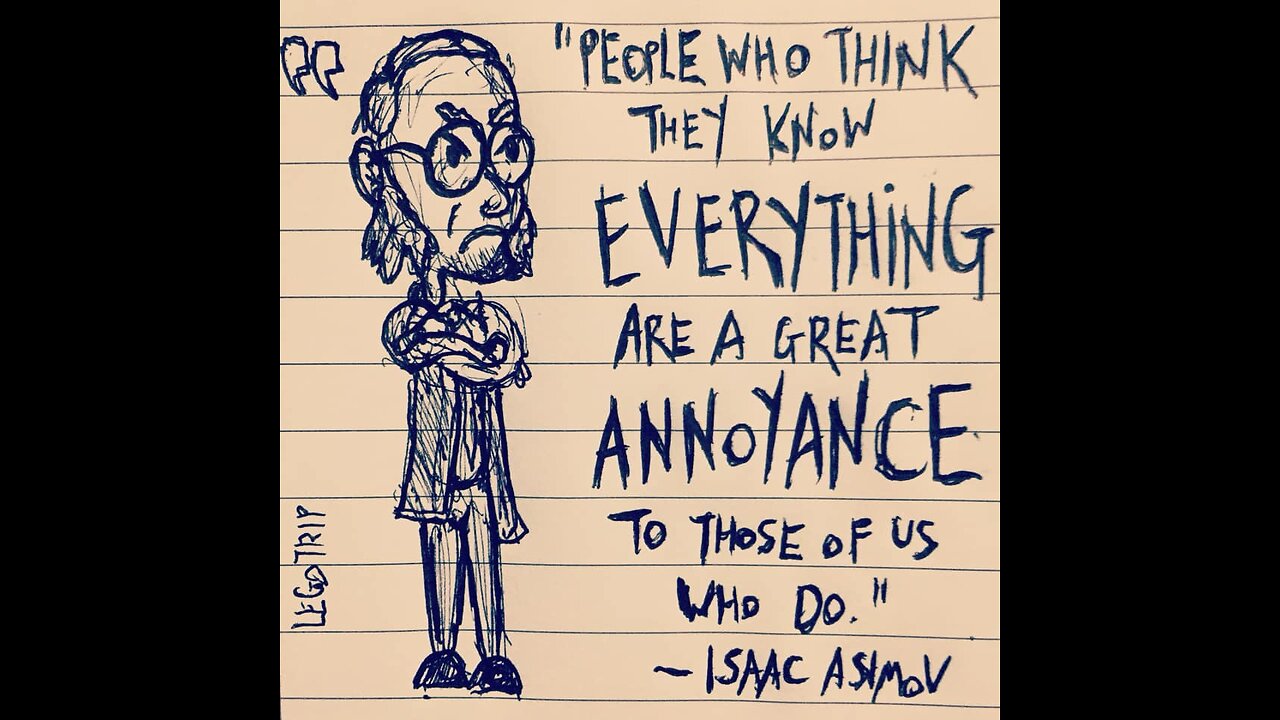 "PEOPLE WHO THINK
THEY KNOW
EVERYTHiNG
ARE A GREAT
ANNOYANCE
TO THOSE OF US
WHO DO."
~ ISAAC ASIMOV
LEGOTRIP